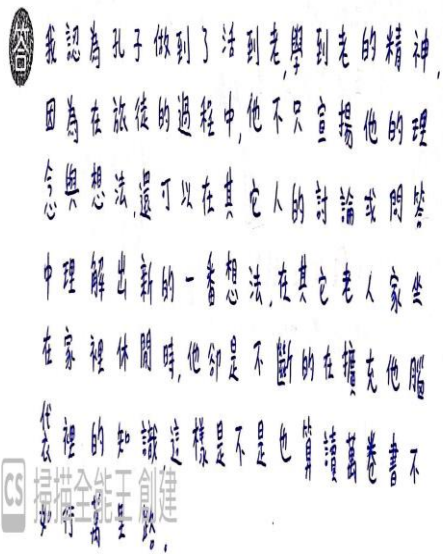 答
我認為孔子做到了活到老,學到老的精神,
因為在旅徒的過程中,他不只宣揚他的理
念與想法,還可以在其它人的討論或問答
中理解出新的一番想法,在其它老人家坐
在家裡休閒時,他卻是不斷的在擴充他腦
袋裡的知識,這樣是不是也算讀萬卷書不
如行萬里路。
CS 掃描全能王 創建